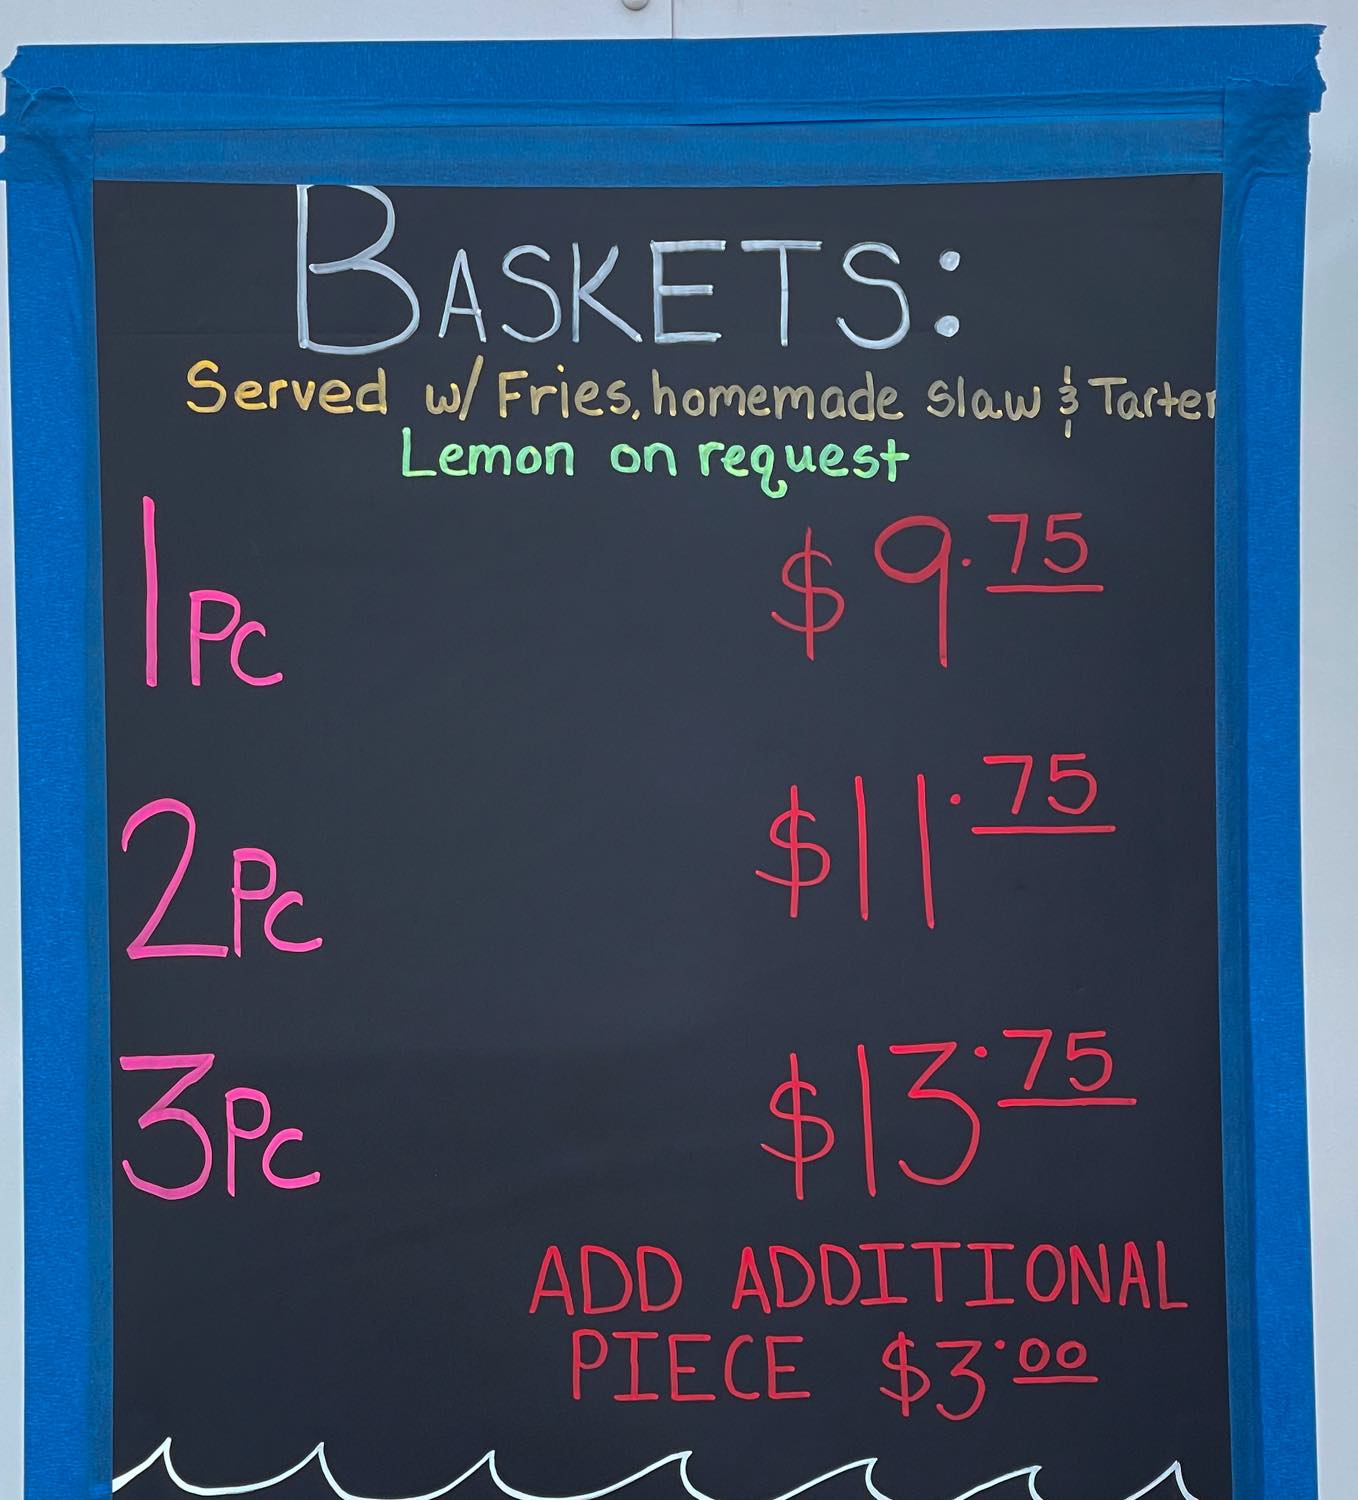 BASKETS:
Served w/ Fries, homemade slaw & Tarter
Lemon on request
1PC $9.75
2PC $11.75
3PC $13.75
ADD ADDITIONAL
PIECE $3.00